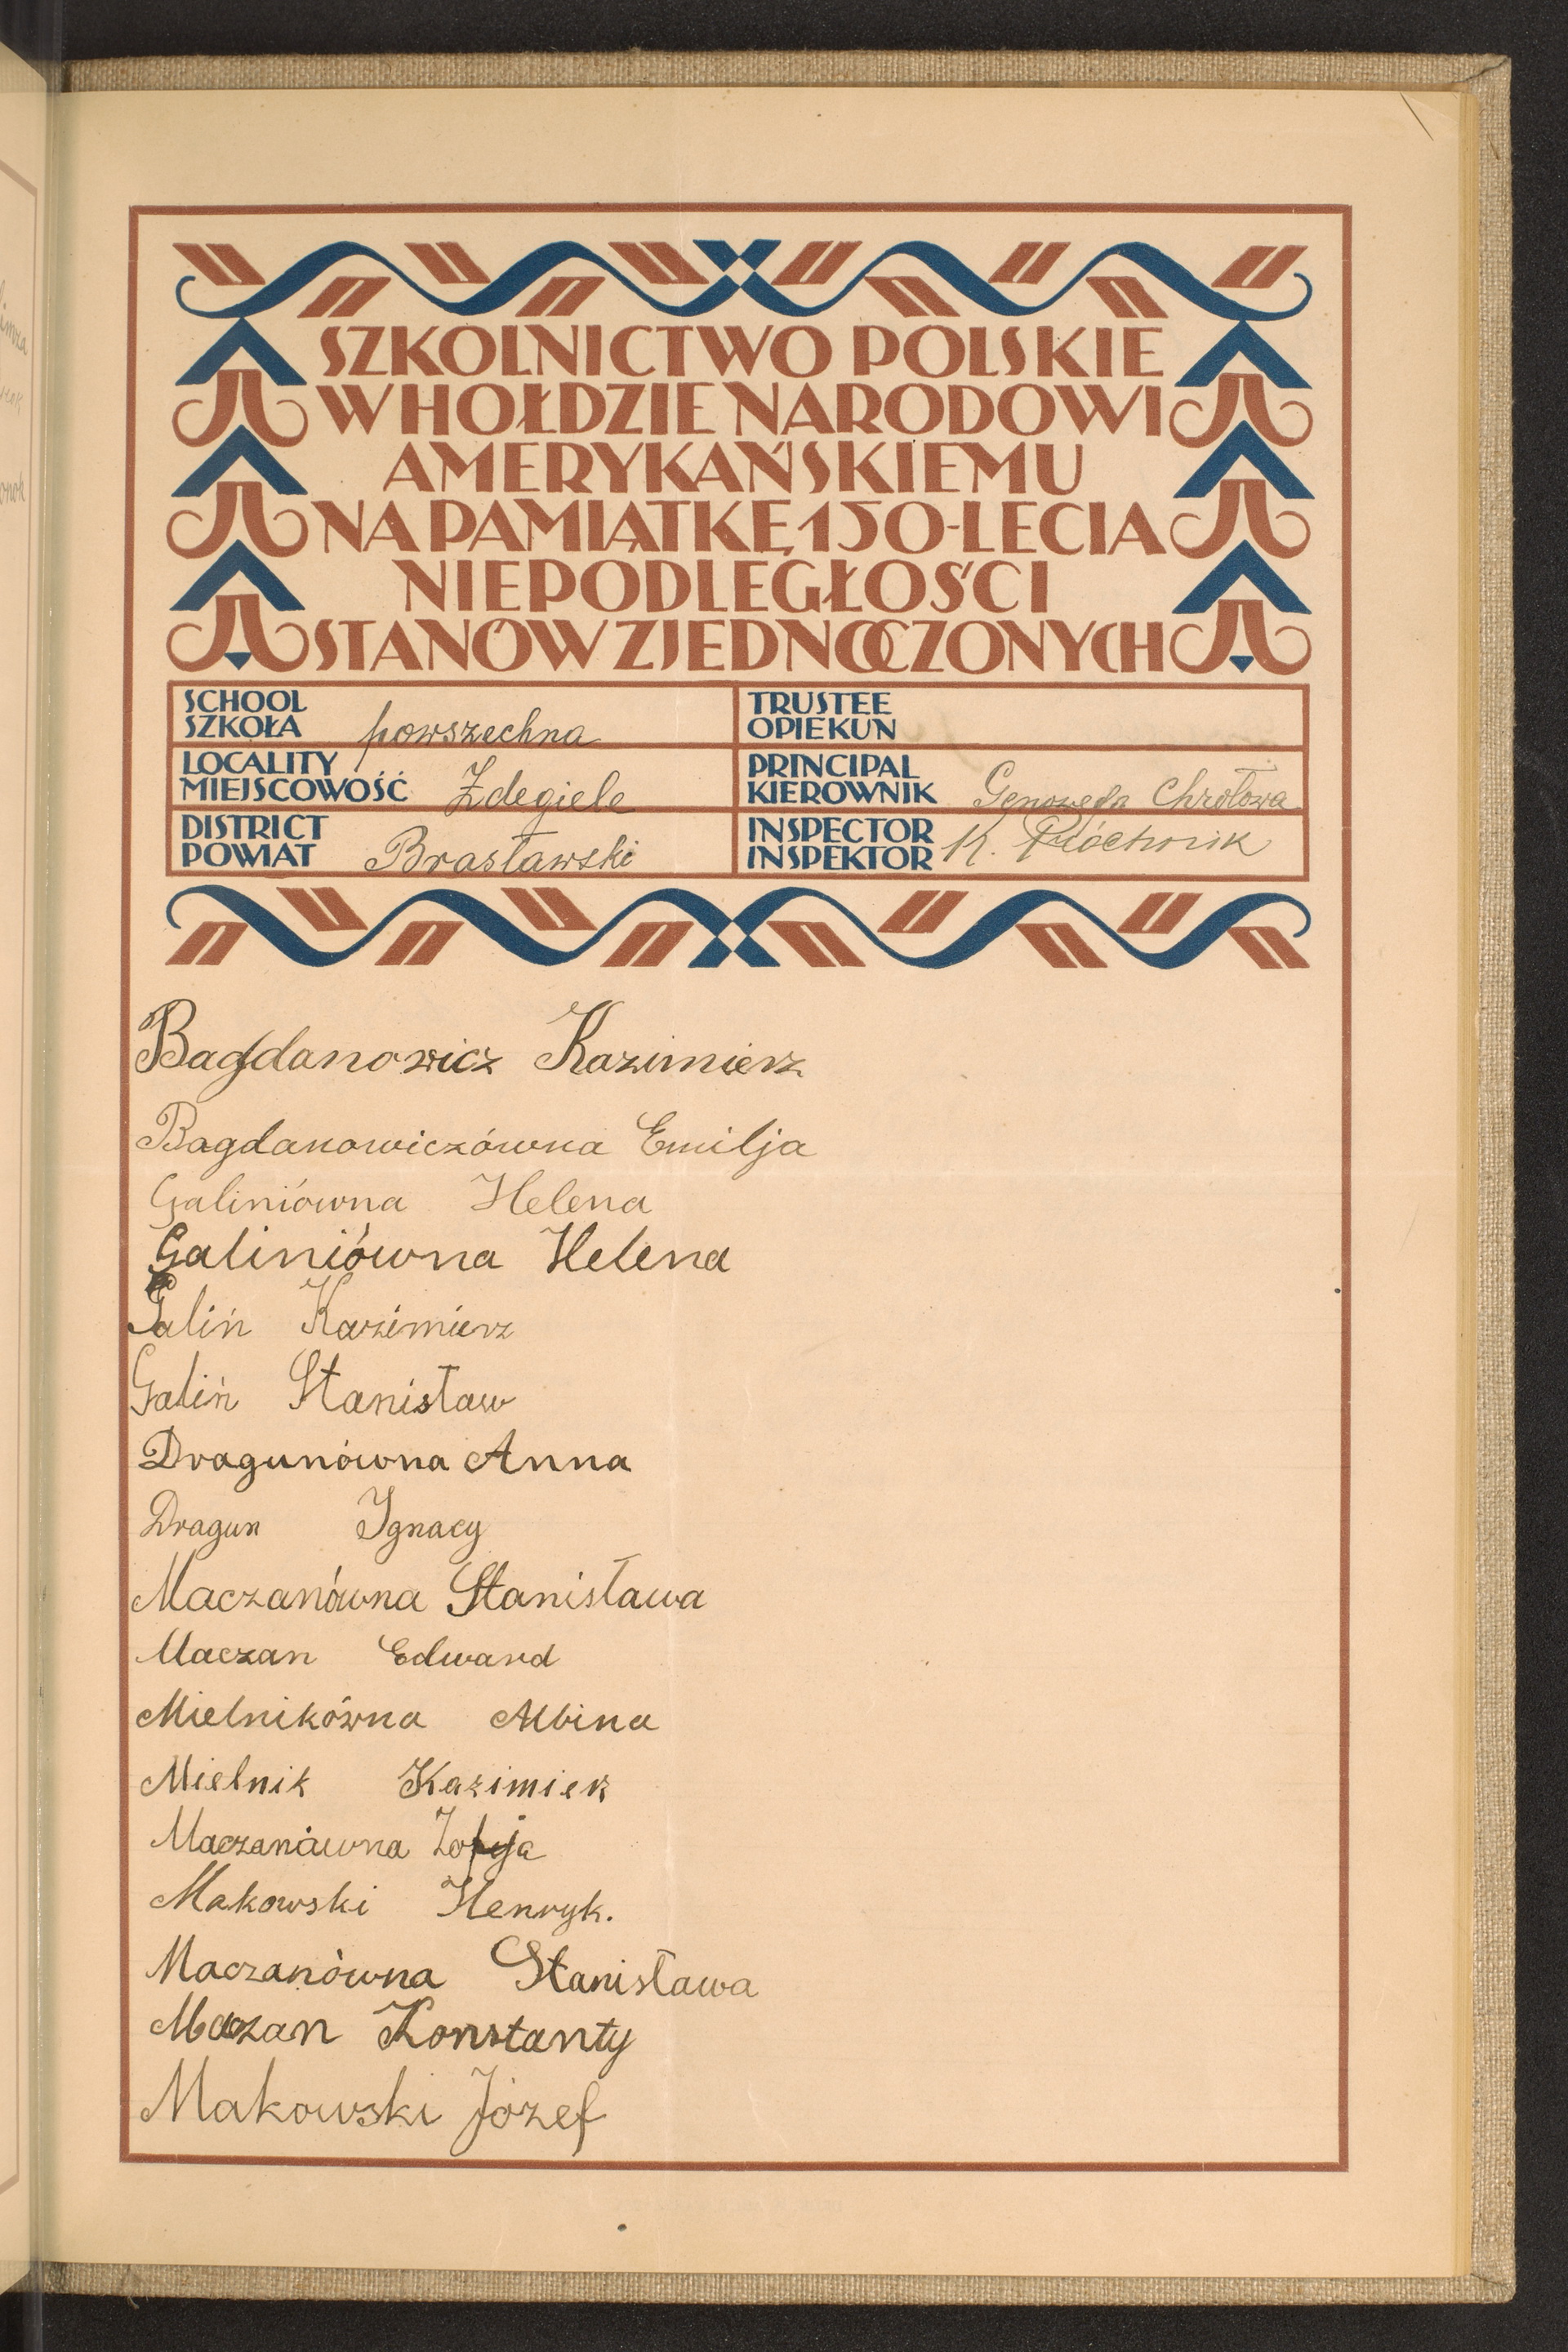 SZKOLNICTWO POLSKIE
W HOŁDZIE NARODOWI
AMERYKAŃSKIEMU
NA PAMIĄTKĘ 150-LECIA
NIEPODLEGŁOŚCI
STANÓW ZJEDNOCZONYCH
SCHOOL
SZKOŁA powszechna
TRUSTEE
OPIEKUN
LOCALITY
MIEJSCOWOŚĆ Zdegiele
PRINCIPAL
KIEROWNIK Genowefa Chrołowa
DISTRICT
POWIAT Brasławski
INSPECTOR
INSPEKTOR K. Płóchnik
Bagdanowicz Kazimierz
Bagdanowiczówna Emilja
Galiniówna Helena
Galiniówna Helena
Galiń Kazimierz
Galiń Stanisław
Dragunówna Anna
Dragun Ignacy
Maczanówna Stanisława
Maczan Edward
Mielnikówna Albina
Mielnik Kazimierz
Maczanówna Zofja
Makowski Henryk.
Maczanówna Stanisława
Maczan Konstanty
Makowski Józef